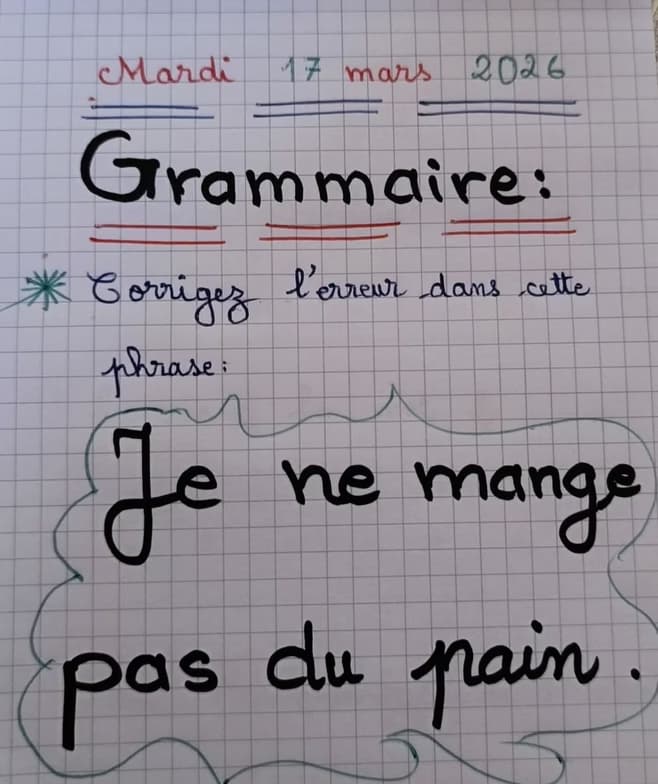 Mardi 17 mars 2026
Grammaire:
Corrigez l'erreur dans cette
phrase:
Je ne mange
pas du pain.